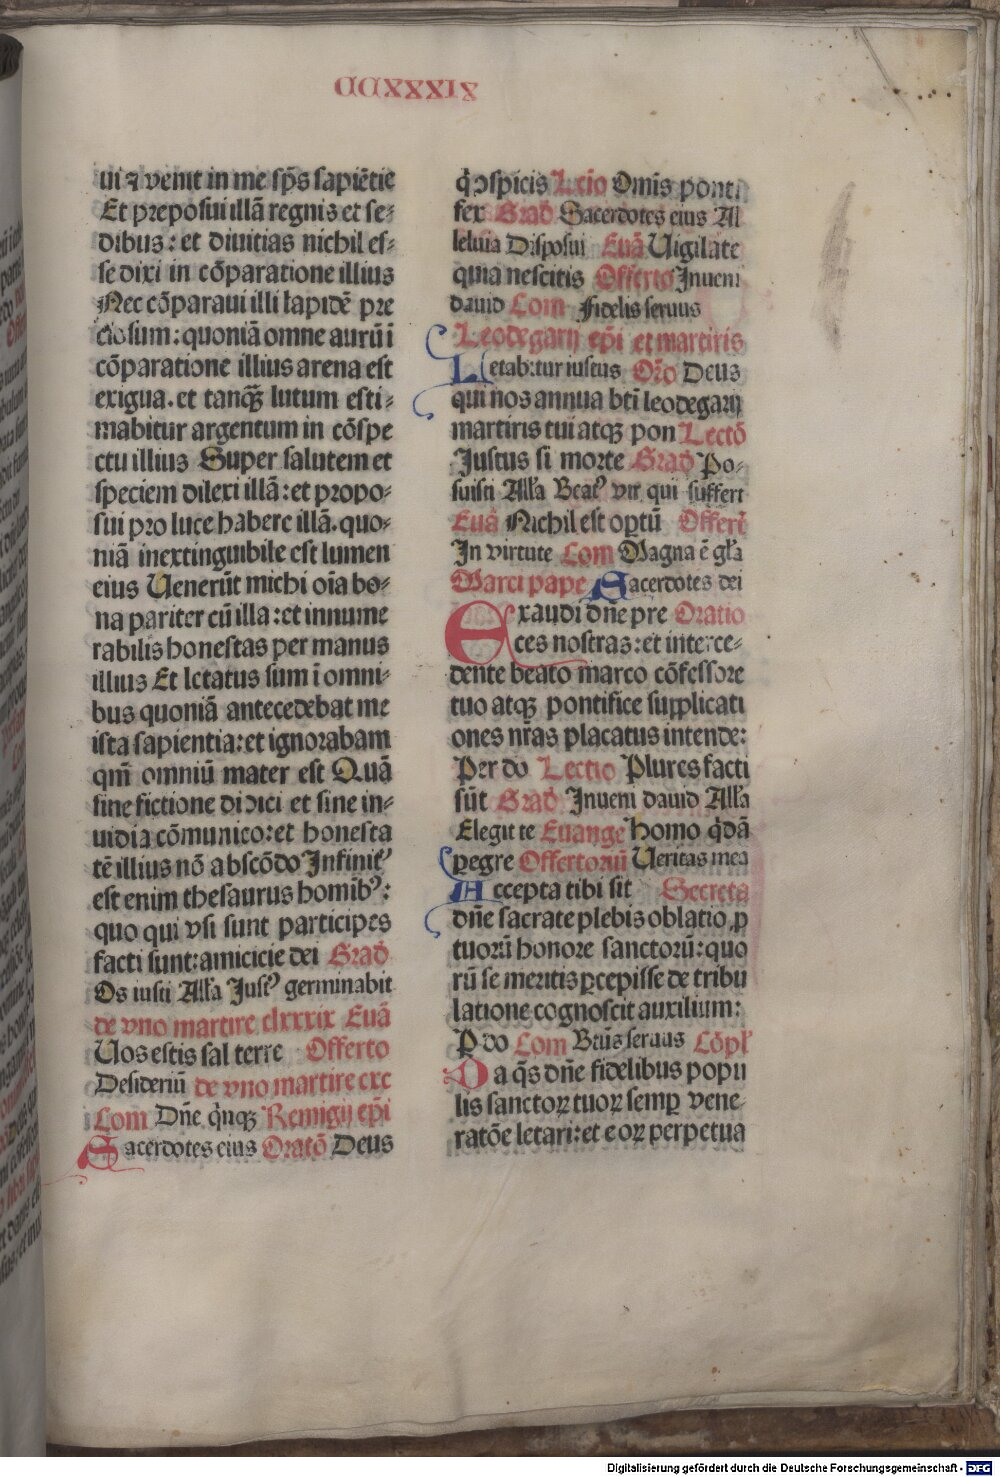 CCXXXIX
ui ⁊ venit in me sp̄s sapiētie
Et preposui illā regnis et se⸗
dibus: et diuitias nichil es⸗
se dixi in cōparatione illius
Nec cōparaui illi lapidē pre
ciosum: quoniā omne aurū ī
cōparatione illius arena est
exigua. et tanqꝫ lutum esti⸗
mabitur argentum in cōspe
ctu illius Super salutem et
speciem dilexi illā: et propo⸗
sui pro luce habere illā. quo⸗
niā inextinguibile est lumen
eius Uenerūt michi oīa bo⸗
na pariter cū illa: et innume
rabilis honestas per manus
illius Et letatus sum ī omni⸗
bus quoniā antecedebat me
ista sapientia: et ignorabam
qm̄ omniū mater est Quā
sine fictione didici et sine in⸗
uidia cōmunico: et honesta
tē illius nō abscōdo Infinitꝰ
est enim thesaurus homībꝰ:
quo qui vsi sunt participes
facti sunt: amicicie dei Grad̄
Os iusti Alīa Justꝰ germinabit
de vno martire clxxxix Euā
Uos estis sal terre Offerto
Desideriū de vno martire cxc
Com Dn̄e qͥnqꝫ Remigij ep̄i
Sacerdotes eius Oratō Deus
qͥ ↄspicis Lcīo Omīs ponti
fex Grad̄ Sacerdotes eius Al
leluia Disposui Euā Uigilate
quia nescitis Offerto Inueni
dauid Com Fidelis seruus
Leodegarij ep̄i et martiris
Letabitur iustus Or̄o Deus
qui nos annua bt̄i leodegarij
martiris tui atqꝫ pon Lectō
Justus si morte Grad̄ Po⸗
suisti Alīa Beatꝰ vir qui suffert
Euā Nichil est optū Offert̄
In virtute Com Magna ē gl̄a
Marci pape Sacerdotes dei
Exaudi dn̄e pre Oratio
ces nostras: et interce⸗
dente beato marco cōfessore
tuo atqꝫ pontifice supplicati
ones nr̄as placatus intende:
Per do Lectio Plures facti
sūt Grad̄ Inueni dauid Alīa
Elegit te Euange Homo qͥdā
pegre Offertoriū Ueritas mea
Accepta tibi sit Secreta
dn̄e sacrate plebis oblatio ꝓ
tuorū honore sanctorū: quo
rū se meritis ꝑcepisse de tribu
latione cognoscit auxilium:
P do Com Btūs seruus Cōpl̄
Da q̄s dn̄e fidelibus popu
lis sanctoꝝ tuoꝝ semꝑ vene⸗
ratōe letari: et eoꝝ perpetua
Digitalisierung gefördert durch die Deutsche Forschungsgemeinschaft - DFG